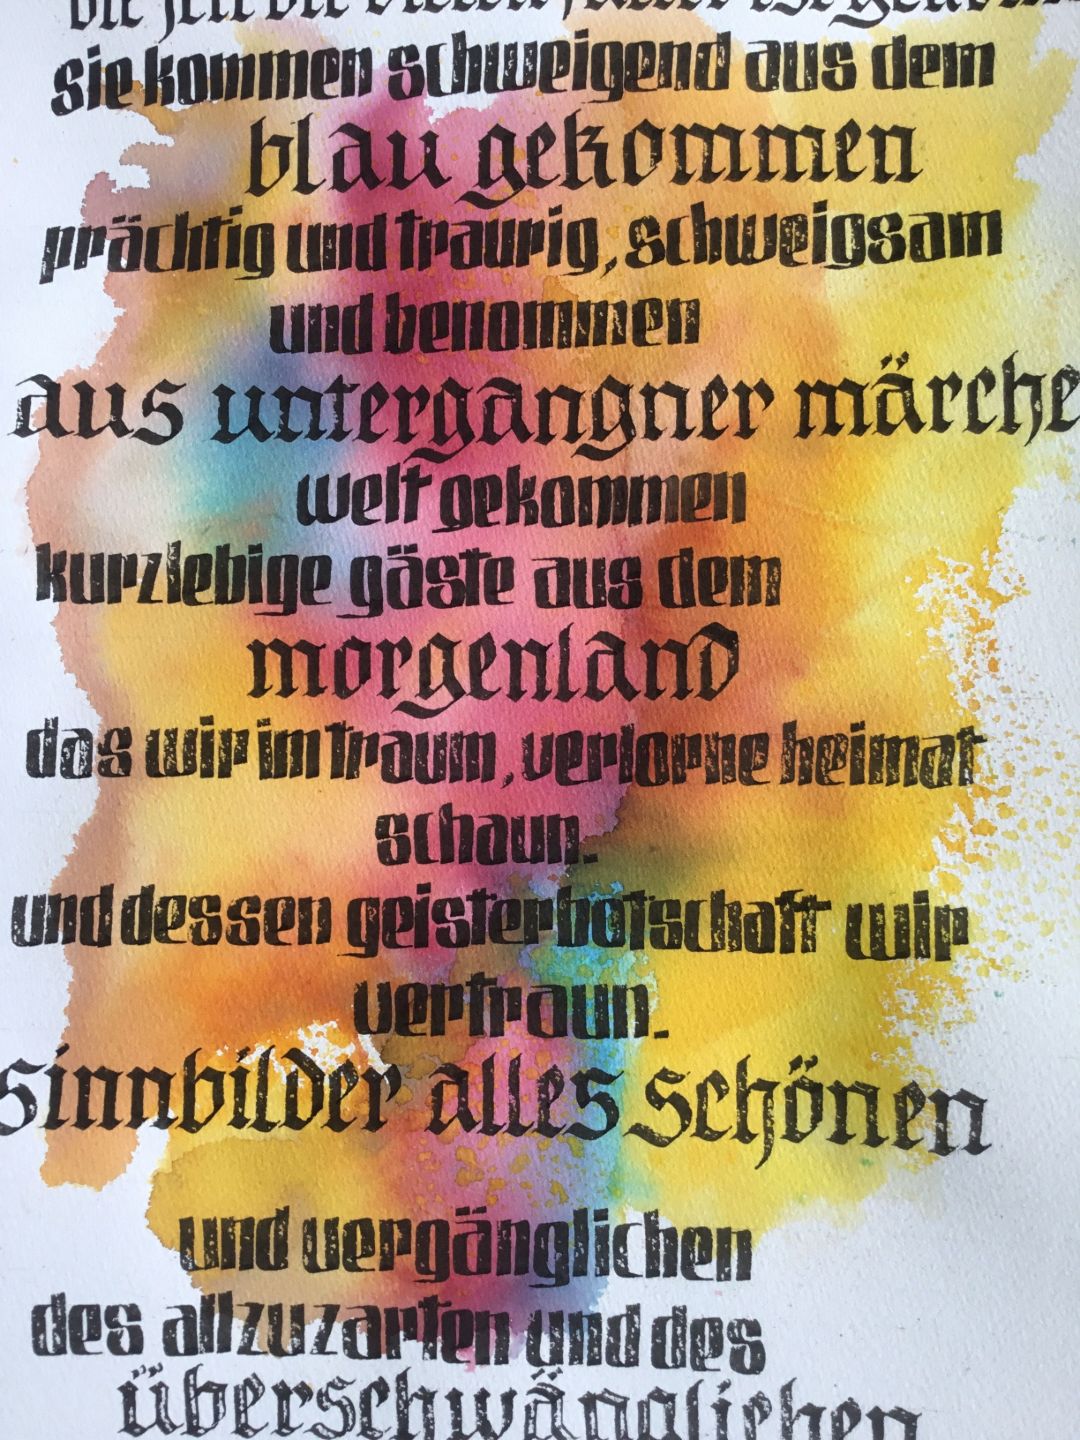 die zeit der vielen falter ist gekommen
sie kommen schweigend aus dem
blau gekommen
prächtig und traurig, schweigsam
und benommen
aus untergangner märche
welt gekommen
kurzlebige gäste aus dem
morgenland
das wir im traum, verlorne heimat
schaun.
und dessen geisterbotschaft wir
vertraun.
sinnbilder alles schönen
und vergänglichen
des allzuzarten und des
überschwänglichen